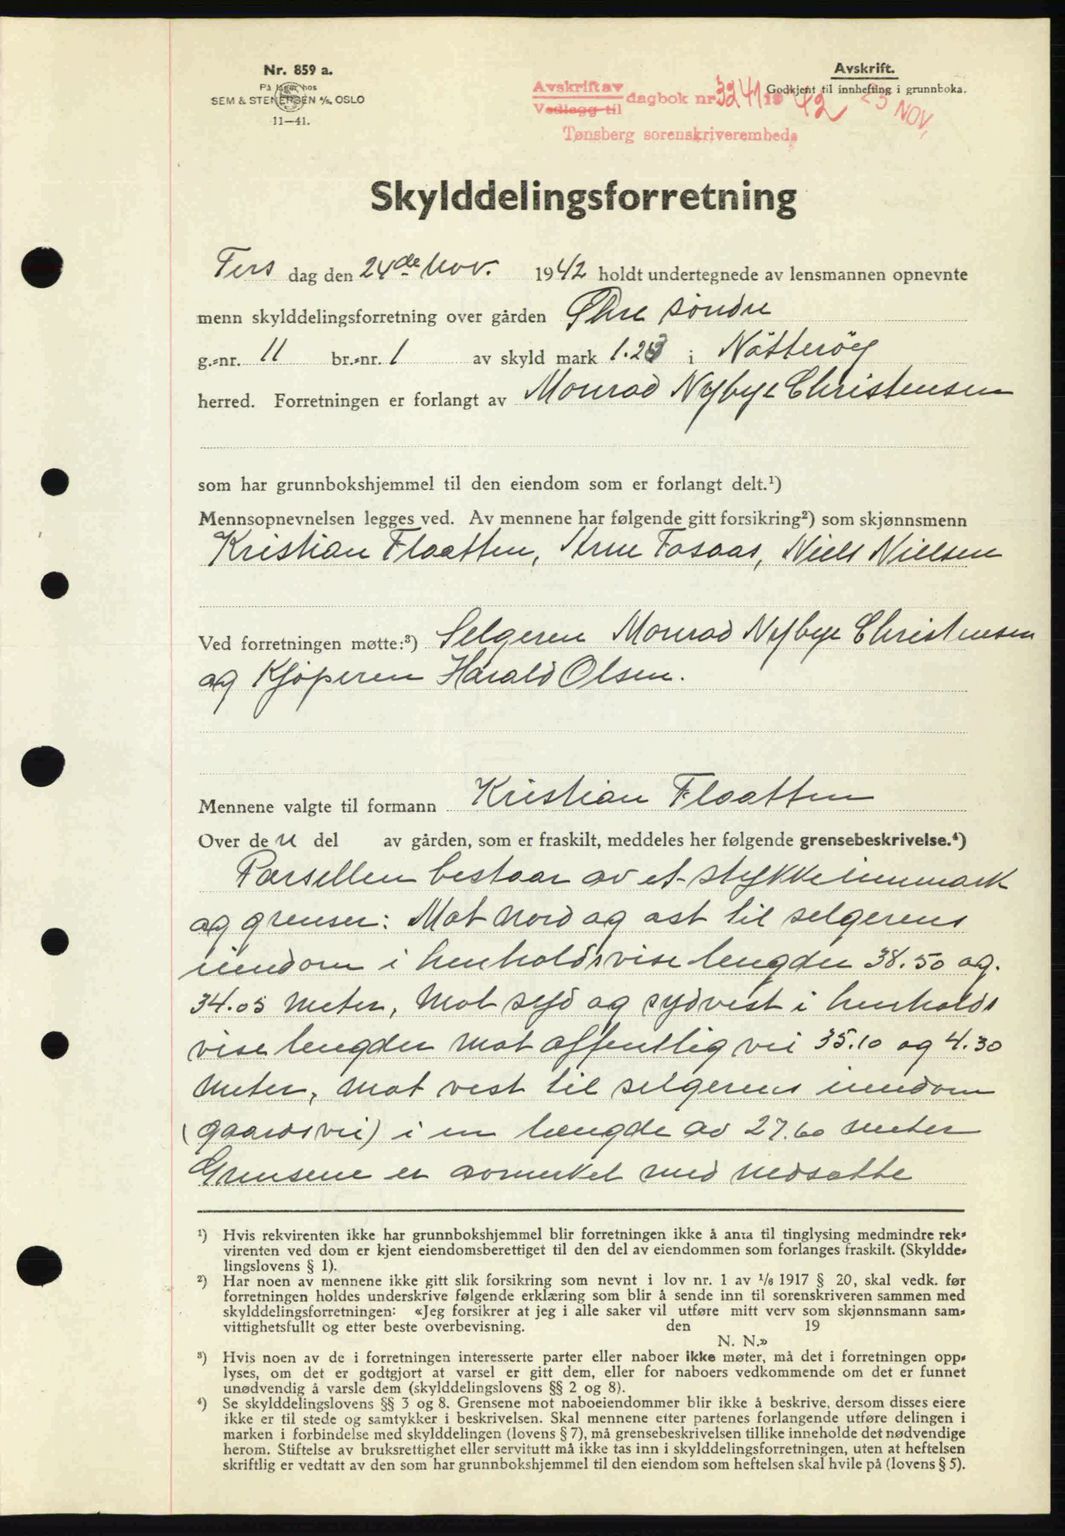 Nr. 859 a.
På lager hos
SEM & STENERSEN A/S, OSLO
11-41.
Avskrift.
Godkjent til innhefting i grunnboka.
Avskrift av
Vedlegg til dagbok nr 3241 19 42 25 NOV.
Tønsberg sorenskriverembede
Skylddelingsforretning
Tirs dag den 24de Nov. 1942 holdt undertegnede av lensmannen opnevnte
menn skylddelingsforretning over gården Øhre söndre
g.-nr. 11 br.-nr. 1 av skyld mark 1.23 i Nötteröy
herred. Forretningen er forlangt av Monrad Nybye Christensen
som har grunnbokshjemmel til den eiendom som er forlangt delt.¹)
Mennsopnevnelsen legges ved. Av mennene har følgende gitt forsikring²) som skjønnsmenn
Kristian Flaatten, Arne Fosaas, Niels Nielsen
Ved forretningen møtte:³) Selgeren Monrad Nybye Christensen
og Kjöperen Harald Olsen.
Mennene valgte til formann Kristian Flaatten
Over den del av gården, som er fraskilt, meddeles her følgende grensebeskrivelse.⁴)
Parsellen bestaar av et stykke innmark
og grenser: Mot Nord og øst til selgerens
eiendom i henholdsvise lengder 38.50 og.
34.05 meter, Mot syd og sydvest i henholds
vise lengder mot offentlig vei 35.10 og 4.30
meter, mot vest til selgerens eiendom
(gaardsvei) i en længde av 27.60 meter
Grensene er avmerket med nedsatte
¹) Hvis rekvirenten ikke har grunnbokshjemmel blir forretningen ikke å anta til tinglysing medmindre rek-
virenten ved dom er kjent eiendomsberettiget til den del av eiendommen som forlanges fraskilt. (Skyldde-
lingslovens § 1).
²) Har noen av mennene ikke gitt slik forsikring som nevnt i lov nr. 1 av 1/6 1917 § 20, skal vedk. før
forretningen holdes underskrive følgende erklæring som blir å sende inn til sorenskriveren sammen med
skylddelingsforretningen: «Jeg forsikrer at jeg i alle saker vil utføre mitt verv som skjønnsmann sam-
vittighetsfullt og etter beste overbevisning. den 19
N. N.»
³) Hvis noen av de i forretningen interesserte parter eller naboer ikke møter, må det i forretningen opp-
lyses, om det er godtgjort at varsel er gitt dem, eller for naboers vedkommende om det er funnet
unødvendig å varsle dem (skylddelingslovens §§ 2 og 8).
⁴) Se skylddelingslovens §§ 3 og 8. Grensene mot naboeiendommer blir ikke å beskrive, dersom disses eiere
ikke er til stede og samtykker i beskrivelsen. Skal mennene etter partenes forlangende utføre delingen i
marken i forbindelse med skylddelingen (lovens § 7), må grensebeskrivelsen tillike inneholde det nødvendige
herom. Stiftelse av bruksrettighet eller servitutt må ikke tas inn i skylddelingsforretningen, uten at heftelsen
skriftlig er vedtatt av den som har grunnbokshjemmel til den eiendom som heftelsen skal hvile på (lovens § 5).